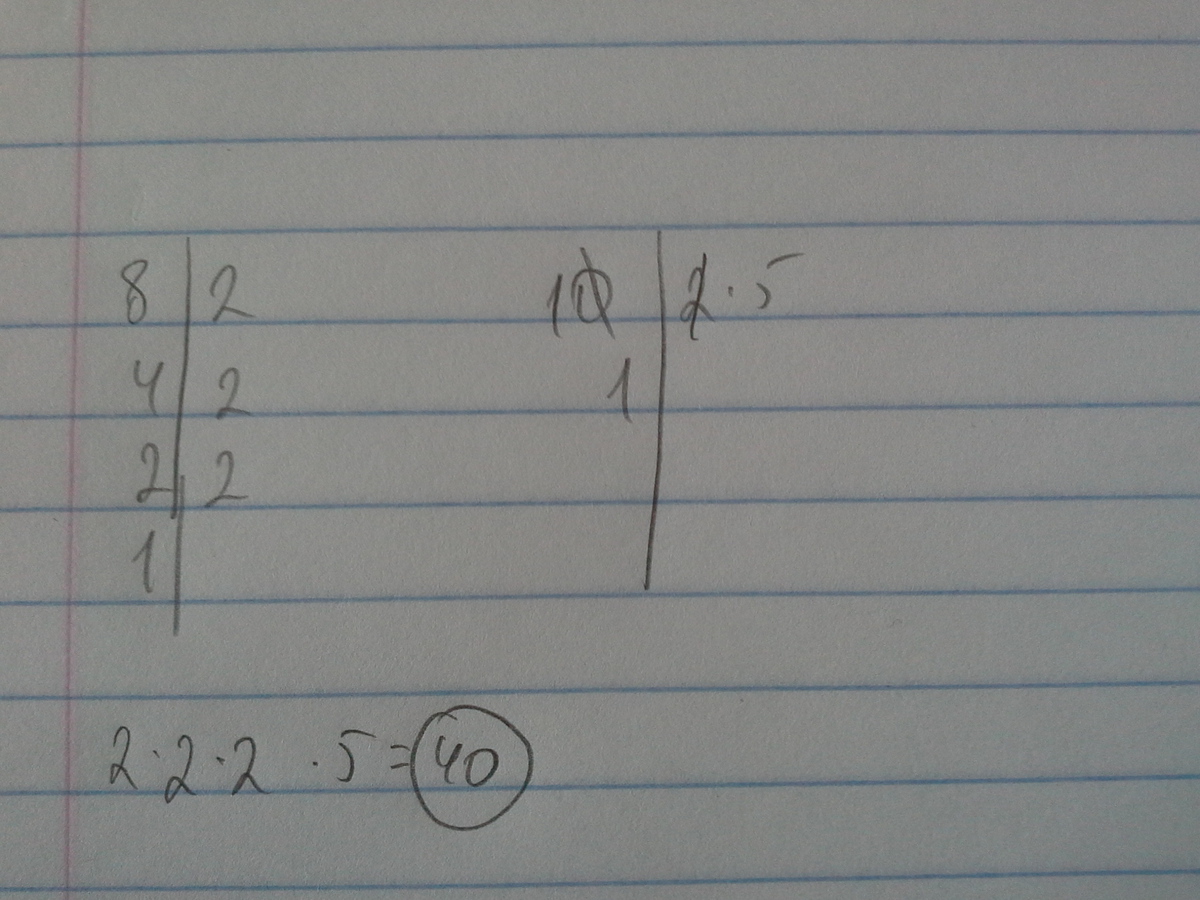 8 | 2
4 | 2
2 | 2
1 |
10 | 2 · 5
1 |
2 · 2 · 2 · 5 = 40